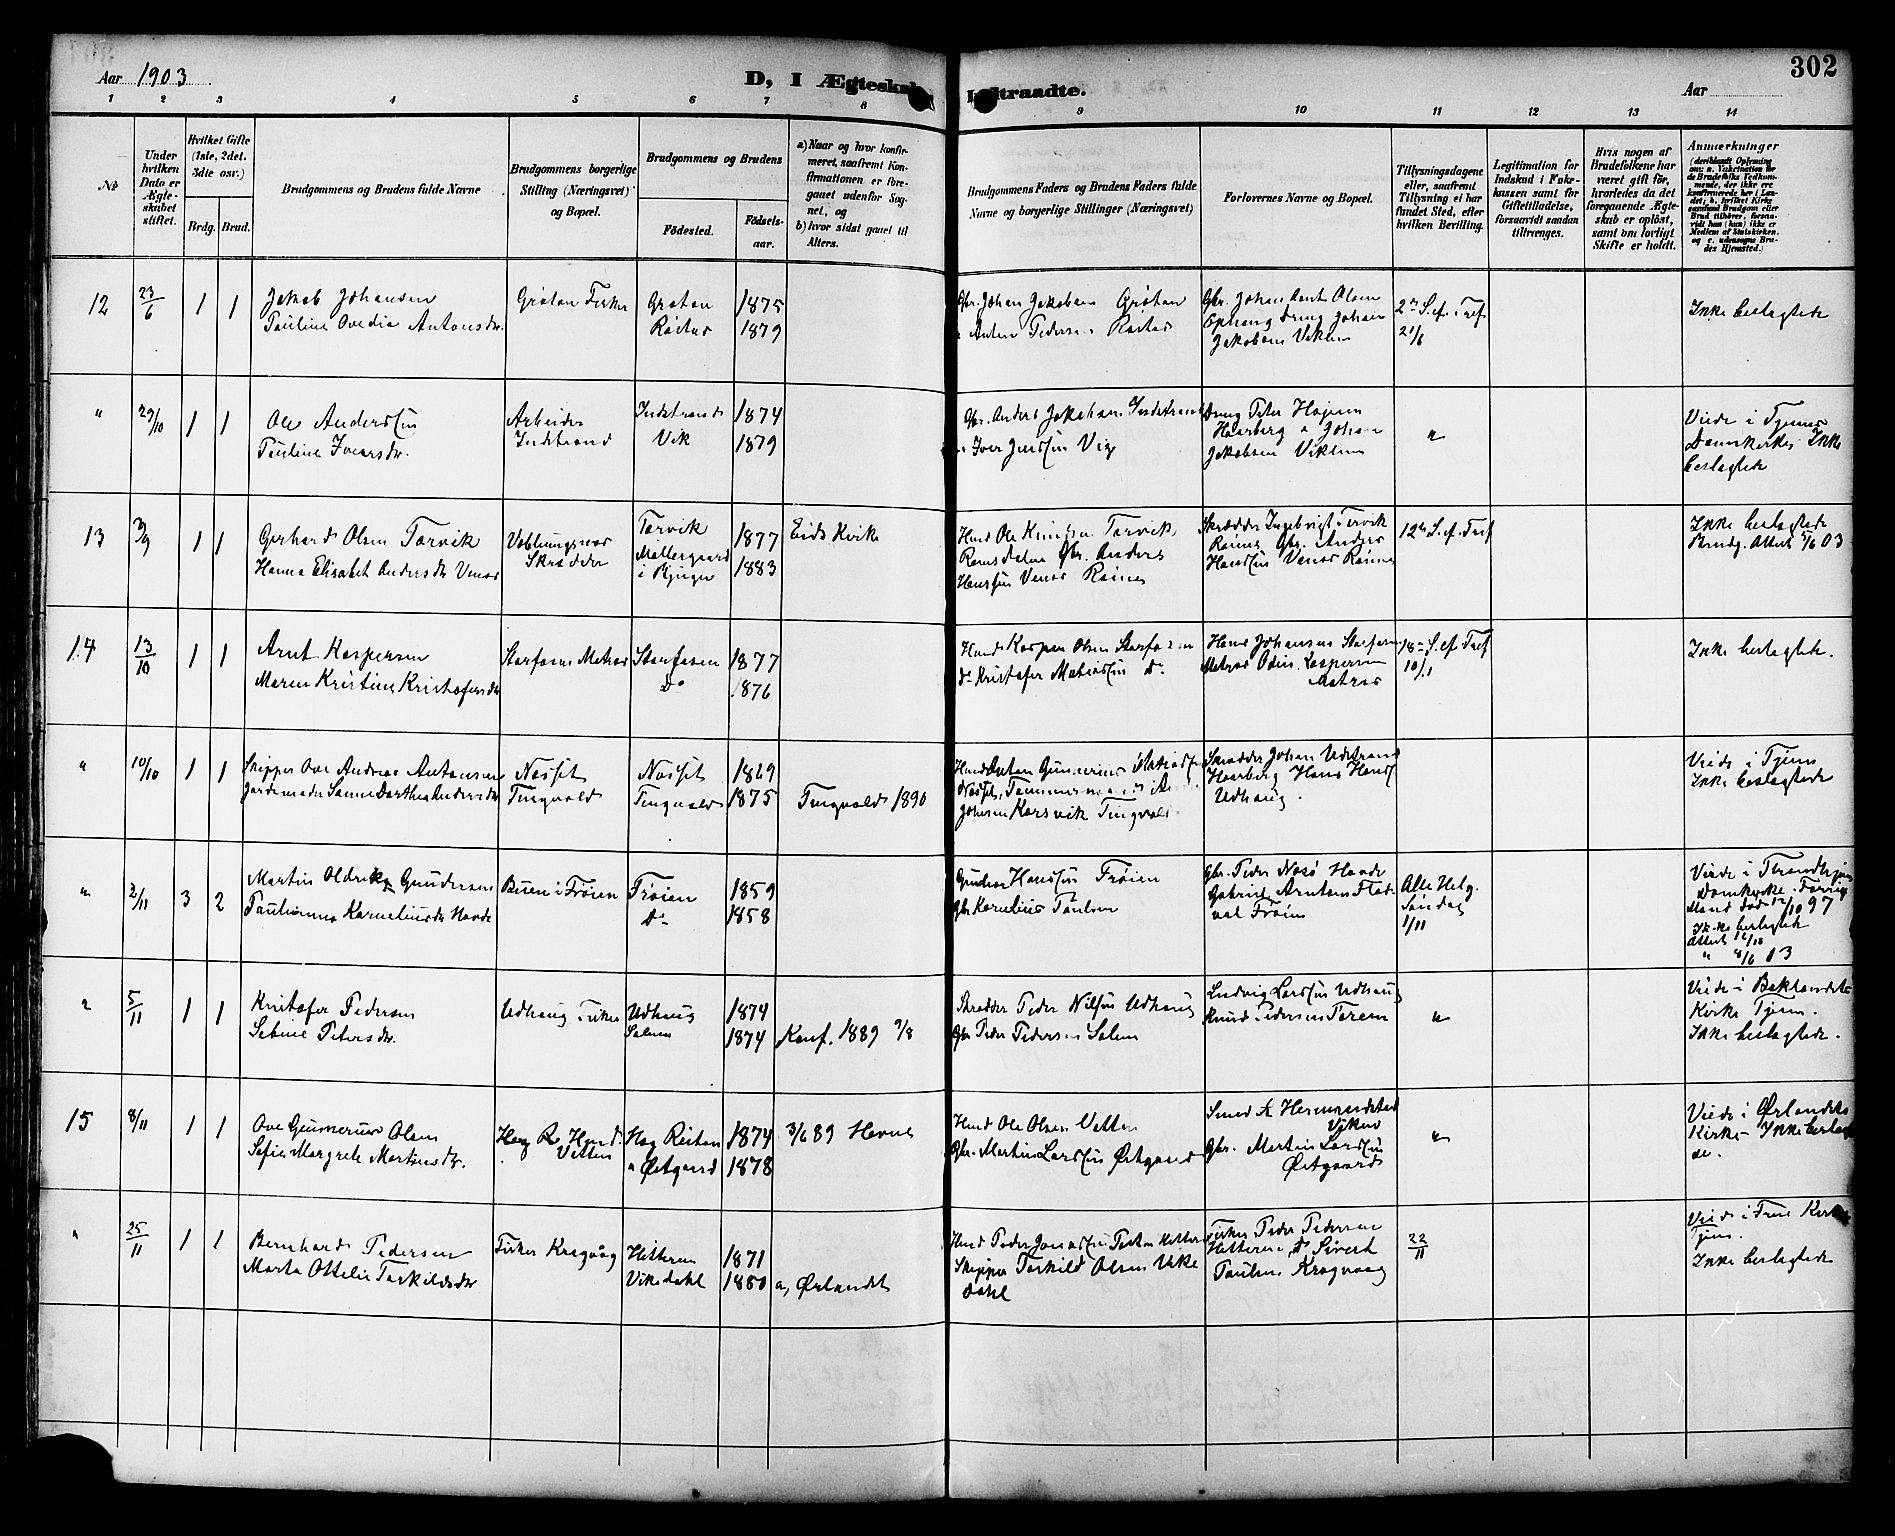 Aar 1903.
D, I Ægteskab Indtraadte.
302
Aar
1 2 3 4 5 6 7 8 9 10 11 12 13 14
No
Under hvilken Dato er Ægteskabet stiftet.
Hvilket Gifte (1ste, 2det, 3die osv.)
Brdg. Brud.
Brudgommens og Brudens fulde Navne
Brudgommens borgerlige Stilling (Næringsvei) og Bopæl.
Brudgommens og Brudens
Födested.
Födselsaar.
a) Naar og hvor konfirmeret, saafremt Konfirmationen er foregaaet udenfor Sognet, og
b) hvor sidst gaaet til Alters.
Brudgommens Faders og Brudens Faders fulde Navne og borgerlige Stillinger (Næringsvei)
Forlovernes Navne og Bopæl.
Tillysningsdagene eller, saafremt Tillysning ei har fundet Sted, efter hvilken Bevilling.
Legitimation for Indskud i Enkekassen samt for Giftetilladelse, forsaavidt saadan tiltrænges.
Hvis nogen af Brudefolkene har været gift för, hvorledes da det foregaaende Ægteskab er oplöst, samt om lovligt Skifte er holdt.
Anmærkninger
12 23/6 1 1
Jakob Johansen
Pauline Ovedia Antonsdr.
Grøtan Fisker
Grøtan 1875
Røstad 1879
Gbr. Johan Jakobsen Grøtan
" Anton Pedersen Røstad
Gbr. Johan Arnt Olsen
Ophaug Dreng Johan
Jakobsen Viklem
2n S. ef. Tref
21/6
Ikke beslægtede
" 29/10 1 1
Ole Anderssen
Pauline Iversdr.
Arbeider
Indstrand
Indstrand 1874
Vik 1879
Gbr. Anders Jakobsen Indstrand
" Iver Jenssen Vig
Dreng Peter Hojem
Haarberg a Johan
Jakobsen Viklem
"
Viede i Tjems
Domkirke. Ikke
beslægtede
13 3/9 1 1
Gerhard Olsen Torvik
Hanna Elisabet Andersdr Venos
Veblungsnes
Skrædder
Torvik 1877
Mollergaard
i Bjugn 1883
Eids Kirke
Husd Ole Knudsen Torvik
Romsdalen Gbr. Anders
Hanssen Venos Raines
Skrædder Ingebrigt Tervik
Raines Gbr. Anders
Hanssen Venos Raines
12te S. ef. Tref
Ikke beslægtede
Brudg. Attest 5/6 03
14 13/10 1 1
Arnt Kaspersen
Maren Kristine Kristofersdr
Storfosen Matros
Storfosen 1877
Do 1876
Husd Kasper Olsen Storfosen
do Kristofer Matiassen do
Hans Johansen Storfosen
Matros Odin Kaspersen
Matros
18de S. ef Tref
10/1
Ikke beslægtede.
" 10/10 1 1
Skipper Ove Andreas Antonsen
Jordemoder Sanna Dorthea Andersdr
Nosset
Tingvold
Nosset 1869
Tingvold 1875
Tingvold 1890
Husd Anton Gunnerius
Nosset, Tømmermand
Johnsen Korsvik Tingvold
Skrædder Johan Udstrand
Haarberg Hans Hanss
Udhaug.
Viede i Tjems
Ikke beslægtede
" 2/11 3 2
Martin Oldrek Gundersen
Paulianna Korneliusdr Hovde
Buen i Frøien
Frøien 1859
Do 1858
Gunder Hanssen Frøien
Gbr Kornelius Paulsen
Gbr. Peder Nosø Hovde
Gabriel Arntsen Flat-
val Frøien
Alle Helg.
Søndag
1/11
Viede i Trondhjems
Domkirke. Forrige
Mand død 12/10 97
Ikke beslægtede
Attest 12/10
" 4/6 03
" 5/11 1 1
Kristofer Pedersen
Sebine Petersdr.
Udhaug Fisker
Udhaug 1874
Solem 1874
Konf. 1889 9/8
Skrædder Peder Nilsen Udhaug
Gbr Peder Pedersen Solem
Ludvig Larssen Udhaug
Knud Pedersen Forem
"
Viede i Baklandets
Kirke Tjem.
Ikke beslægtede.
15 8/11 1 1
Ove Gunnerius Olsen
Sofie Margrete Martinsdr.
Hog R. Husd.
Vetten
Hog Reitan 1874
" Østgaard 1878
3/6 89 Hevne
Husd Ole Olsen Vetten
Gbr. Martin Larssen Østgaard
Smed A Hermandstad
Viken
Gbr. Martin Larssen
Østgaard
"
Viede i Ørlandets
Kirke - Ikke beslægte
de.
" 25/11 1 1
Bernhard Pedersen
Marta Ottelie Torkildsdr
Fisker Kragvåg
Hitteren 1871
Viksdahl 1880
a, Ørlandet
Husd Peder Jonassen Hitter
Skipper Torkild Olsen Viks
dahl
Fisker Peder Pedersen
Hitteren, do Sivert
Paulsen Kragvaag
22/11
Viede i Frue Kirke
Tjem.
Ikke beslægtede